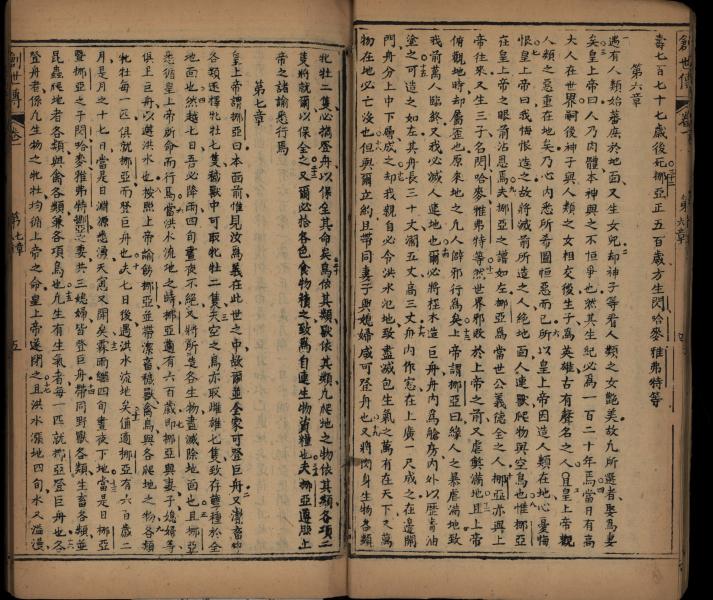 創世傳
第六章
壽七百七十七歲後死挪亞正五百歲方生閃哈麥雅弗特等
第六章
遇有人類始蕃庶於地面又生女兒却神子等看人類之女艷美故凡所選者娶爲妻
矣皇上帝曰人乃肉體本神與之不恒爭也然其生紀必爲一百二十年焉當日有高
大人在世界嗣後神子與人類之女相交後生子爲英雄古有聲名之人且皇上帝觀
人類之惡重在地矣乃心內悉所奇圖恒惡而已所以皇上帝因造人類在地心憂悔
恨皇上帝曰我悔恨造之故將滅前所造之人絕地面人連獸爬物與空鳥也惟挪亞
在皇上帝之眼前沾恩焉夫挪亞之譜如左挪亞爲當世公義德全之人挪亞亦與上
帝往來又生三子名閃哈麥雅弗特等然世界邪敗於上帝之前又虐弊滿地且上帝
俯觀地時却屬歪也原來地之凡人僻邪行爲矣上帝謂挪亞曰緣人之暴虐滿地致
我前萬人臨終又我必滅人連地也爾必將柽木造巨舟舟內爲艙房內外以瀝青油
塗之可造之如左其舟長三十丈濶五丈高三丈舟內作窓在上廣一尺成之在邊開
門舟分上中下層成之却我親自必令洪水氾地致盡滅包生氣之萬有在天下又萬
物在地必亡没也但與爾立約且帶同妻子與媳婦咸可登舟也又將肉身生物各類
牝牡二隻必攜登舟以保全其命矣爲依其類獸依其類凡爬地之物依其類各項二
隻將就爾以保全之又爾必拾各色食物積之致爲自連生物資糧也夫挪亞遵照上
帝之諸諭悉行焉
第七章
皇上帝謂挪亞曰本面前惟見汝爲義在此世之中故爾並全家可登巨舟又潔畜牲
各類選擇牝牡七隻穢獸中可取牝牡二隻天空之鳥亦取雌雄七隻致存孽種於全
地面也然越七日吾必降雨四旬晝夜不絕又將所造各生物盡滅除地面也且挪亞
悉循皇上帝所命而行焉當洪水流地之時挪亞適有六百歲即挪亞與妻子媳婦等
俱主巨舟以避洪水也按照上帝諭飭挪亞並帶潔畜穢獸禽鳥與各爬地之物各類
牝牡每一匹俱就挪亞而登巨舟也夫七日後遇洪水流地矣值適挪亞有六百歲二
月是月之十七日當是日淵源悉湧天窓又開矣霖雨繼四旬晝夜下地當是日挪亞
暨挪亞之子閃哈麥雅弗特挪亞之妻共三媳婦皆登巨舟帶同野獸各類生畜各類並
昆蟲爬地者各類與禽各類兼各項鳥也凡生有生氣者每一匹就挪亞登巨舟也各
登舟者係凡生物之牝牡均循上帝之命皇上帝遂閉之且洪水漲地四旬水又溢漫
創世傳
卷一
第七章
五